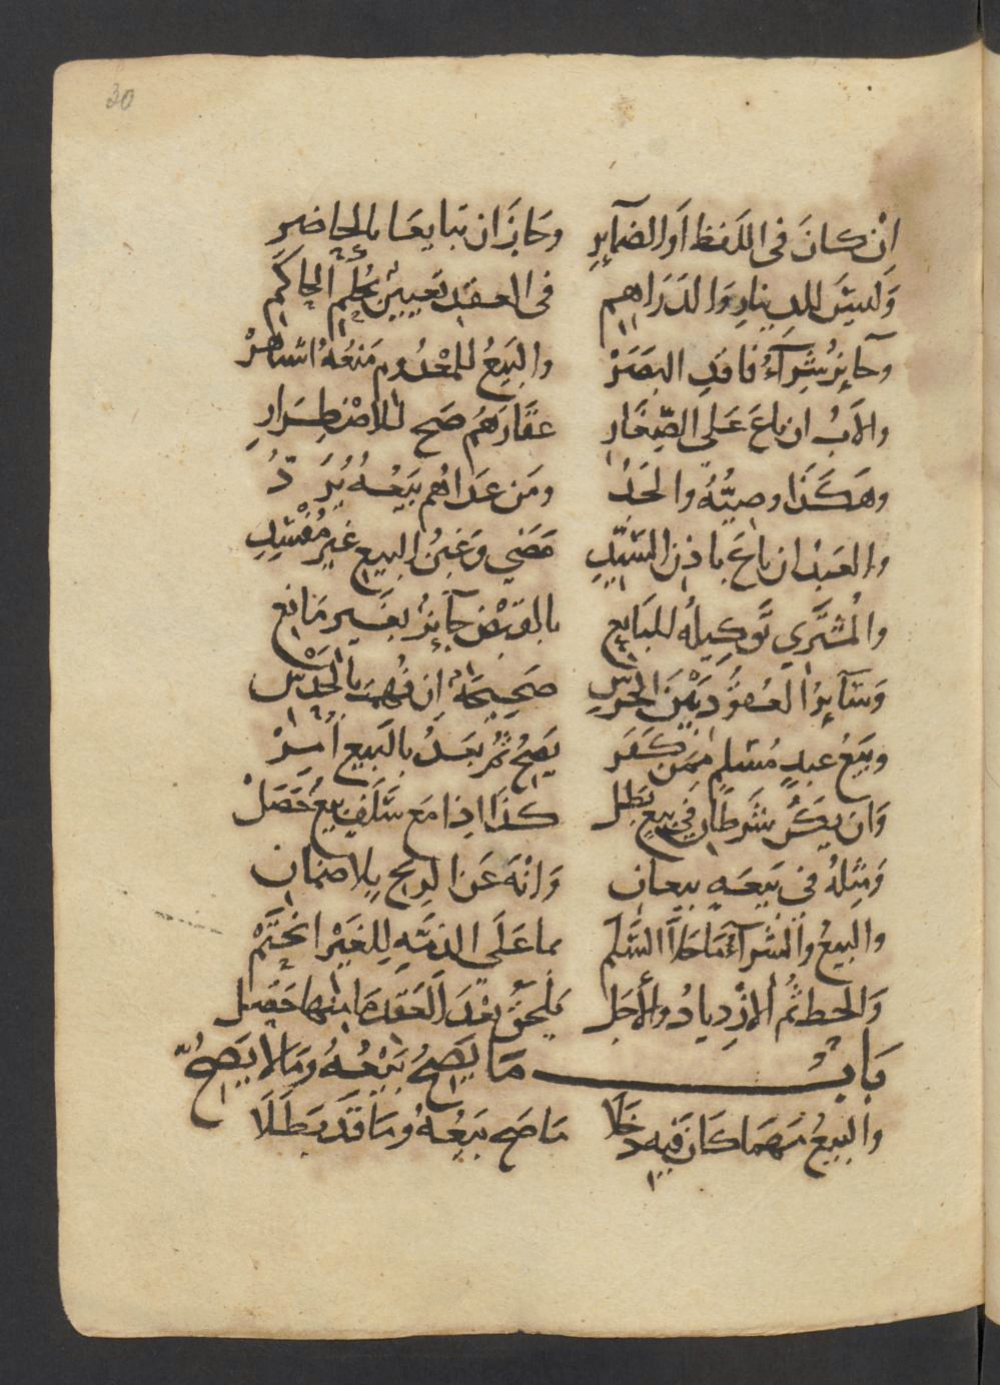 30
ان كانَ فى اللفظ اَو الضمآيرِ وحَازَ ان تبايعَا بالحاضرِ
وَليسَ للدينارِ وَالدَرَاهِم فى العقد تعيين بحُكم الحاكم
وجآيزٌ شِرَآءُ فاقدِ البَصَرْ والبَيعُ للمعْدُومِ مَنعُهُ اشتهرْ
والاَبُ ان باعَ عَلَى الصِّغَارِ عقَارَهُم صَح للاضْطِرَارِ
وهَكَذَا وصِيّهُ والجَدُّ ومَن عدَاهُم بَيعُهُ يُرَدُّ
والعَبدُ ان باعَ باذنِ السَيّدِ مَضَي وَغبنُ البيع غيرُ مُفْسِدِ
والمُشتَرِي تَوكيلُه للبَايعِ بالقبْضِ جآيزٌ بغَيرِ مَانع
وَسَآيرُ العُقودِ بَيْنَ الخرسِ صَحيحَةٌ ان فُهمَت بالحَدْسِ
وبَيعُ عبدٍ مُسلمٍ ممن كَفَر يَصحُ ثمَّ بَعدُ بالبَيعِ اُمِرْ
وَان يَكُن شَرطانِ فى بيعٍ بَطل كذَا اذا مَع سَلَفٍ بيعٌ حَصَلْ
وَمِثلهُ فى بَيعَهٍ بيعان وَانْهَ عَن الربح بِلا ضمان
والبيعُ والشرآءُ مَا خلاَ السَّلَم بما عَلَى الذمّهِ لِلغَيْرِ انحَتَمْ
وَالحط ثُم الازْدِيادُ والأَجَل يَلحَقُ بَعْدَ العَقد مَا منها حَصَل
بَابُ مَا يَصحُ بَيْعُهُ وَمَا لا يَصِحُّ
والبيعُ مَهمَا كَانَ فيهِ دَخَلا مَا صَح بَيعُهُ ومَا قَد بَطَلَا